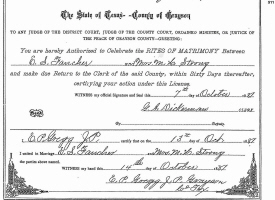 The State of Texas--County of Grayson
TO ANY JUDGE OF THE DISTRICT COURT, JUDGE OF THE COUNTY COURT, ORDAINED MINISTER, OR JUSTICE OF
THE PEACE OF GRAYSON COUNTY--GREETING:
You are hereby Authorized to Celebrate the RITES OF MATRIMONY Between
E. S. Faucher and Mrs. M. L. Strong
and make due Return to the Clerk of the said County, within Sixty Days thereafter,
certifying your action under this License.
WITNESS my official Signature and Seal this 7th October 1887
G. A. Dickerman
E. P. Gregg J. P. certify that on the 13th of Oct 1887
I united in Marriage, E. S. Faucher Mrs. M. L. Strong
the parties above named.
WITNESS my hand this 14th of October 1887
E. P. Gregg J. P. Grayson
Co Tex